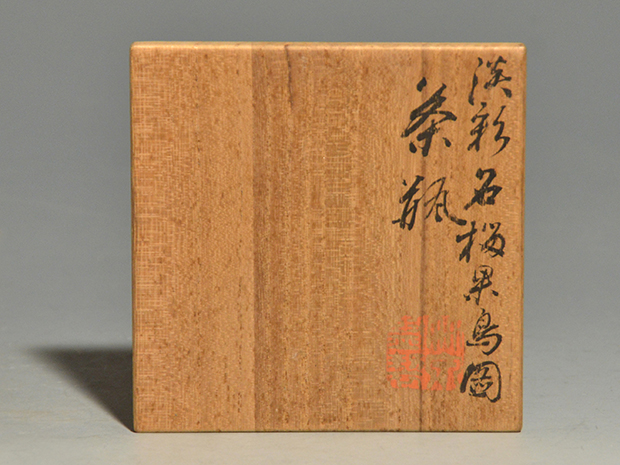 淡彩石榴果鳥圖
茶瓶